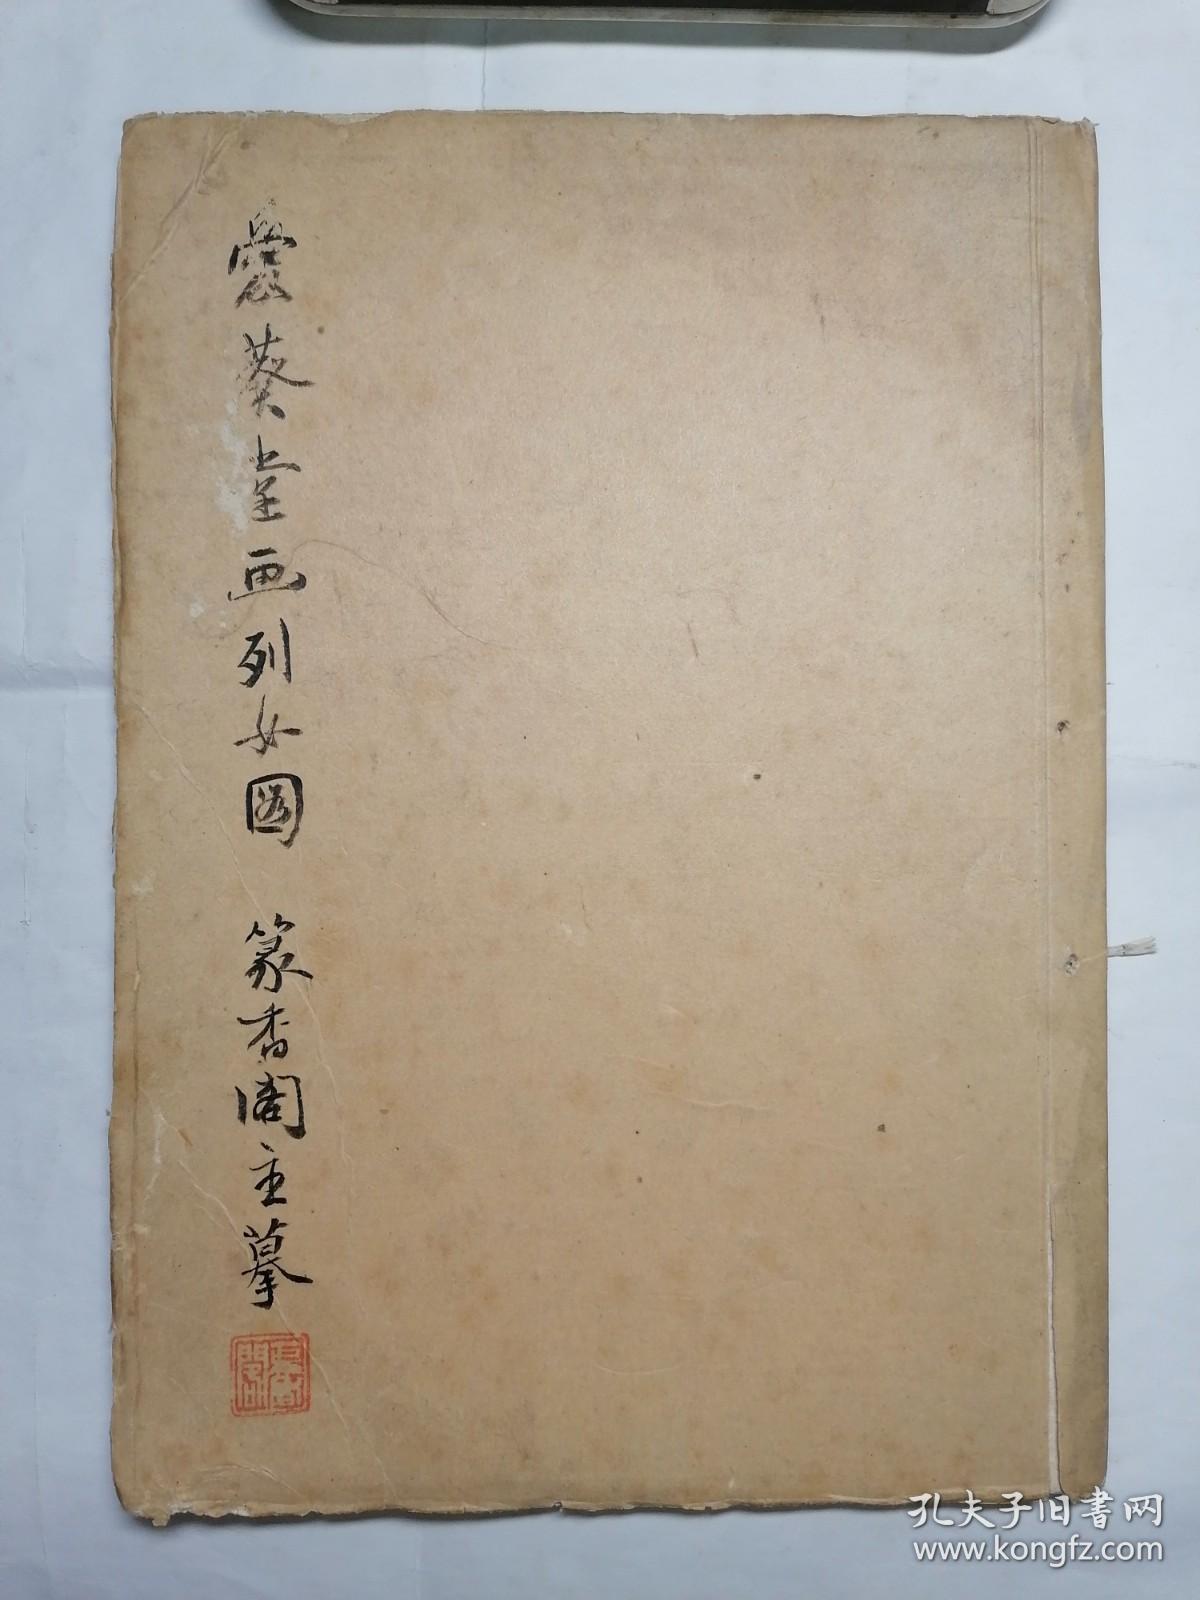 葵堂画列女図 篆香閣主摹
孔夫子旧书网
www.kongfz.com